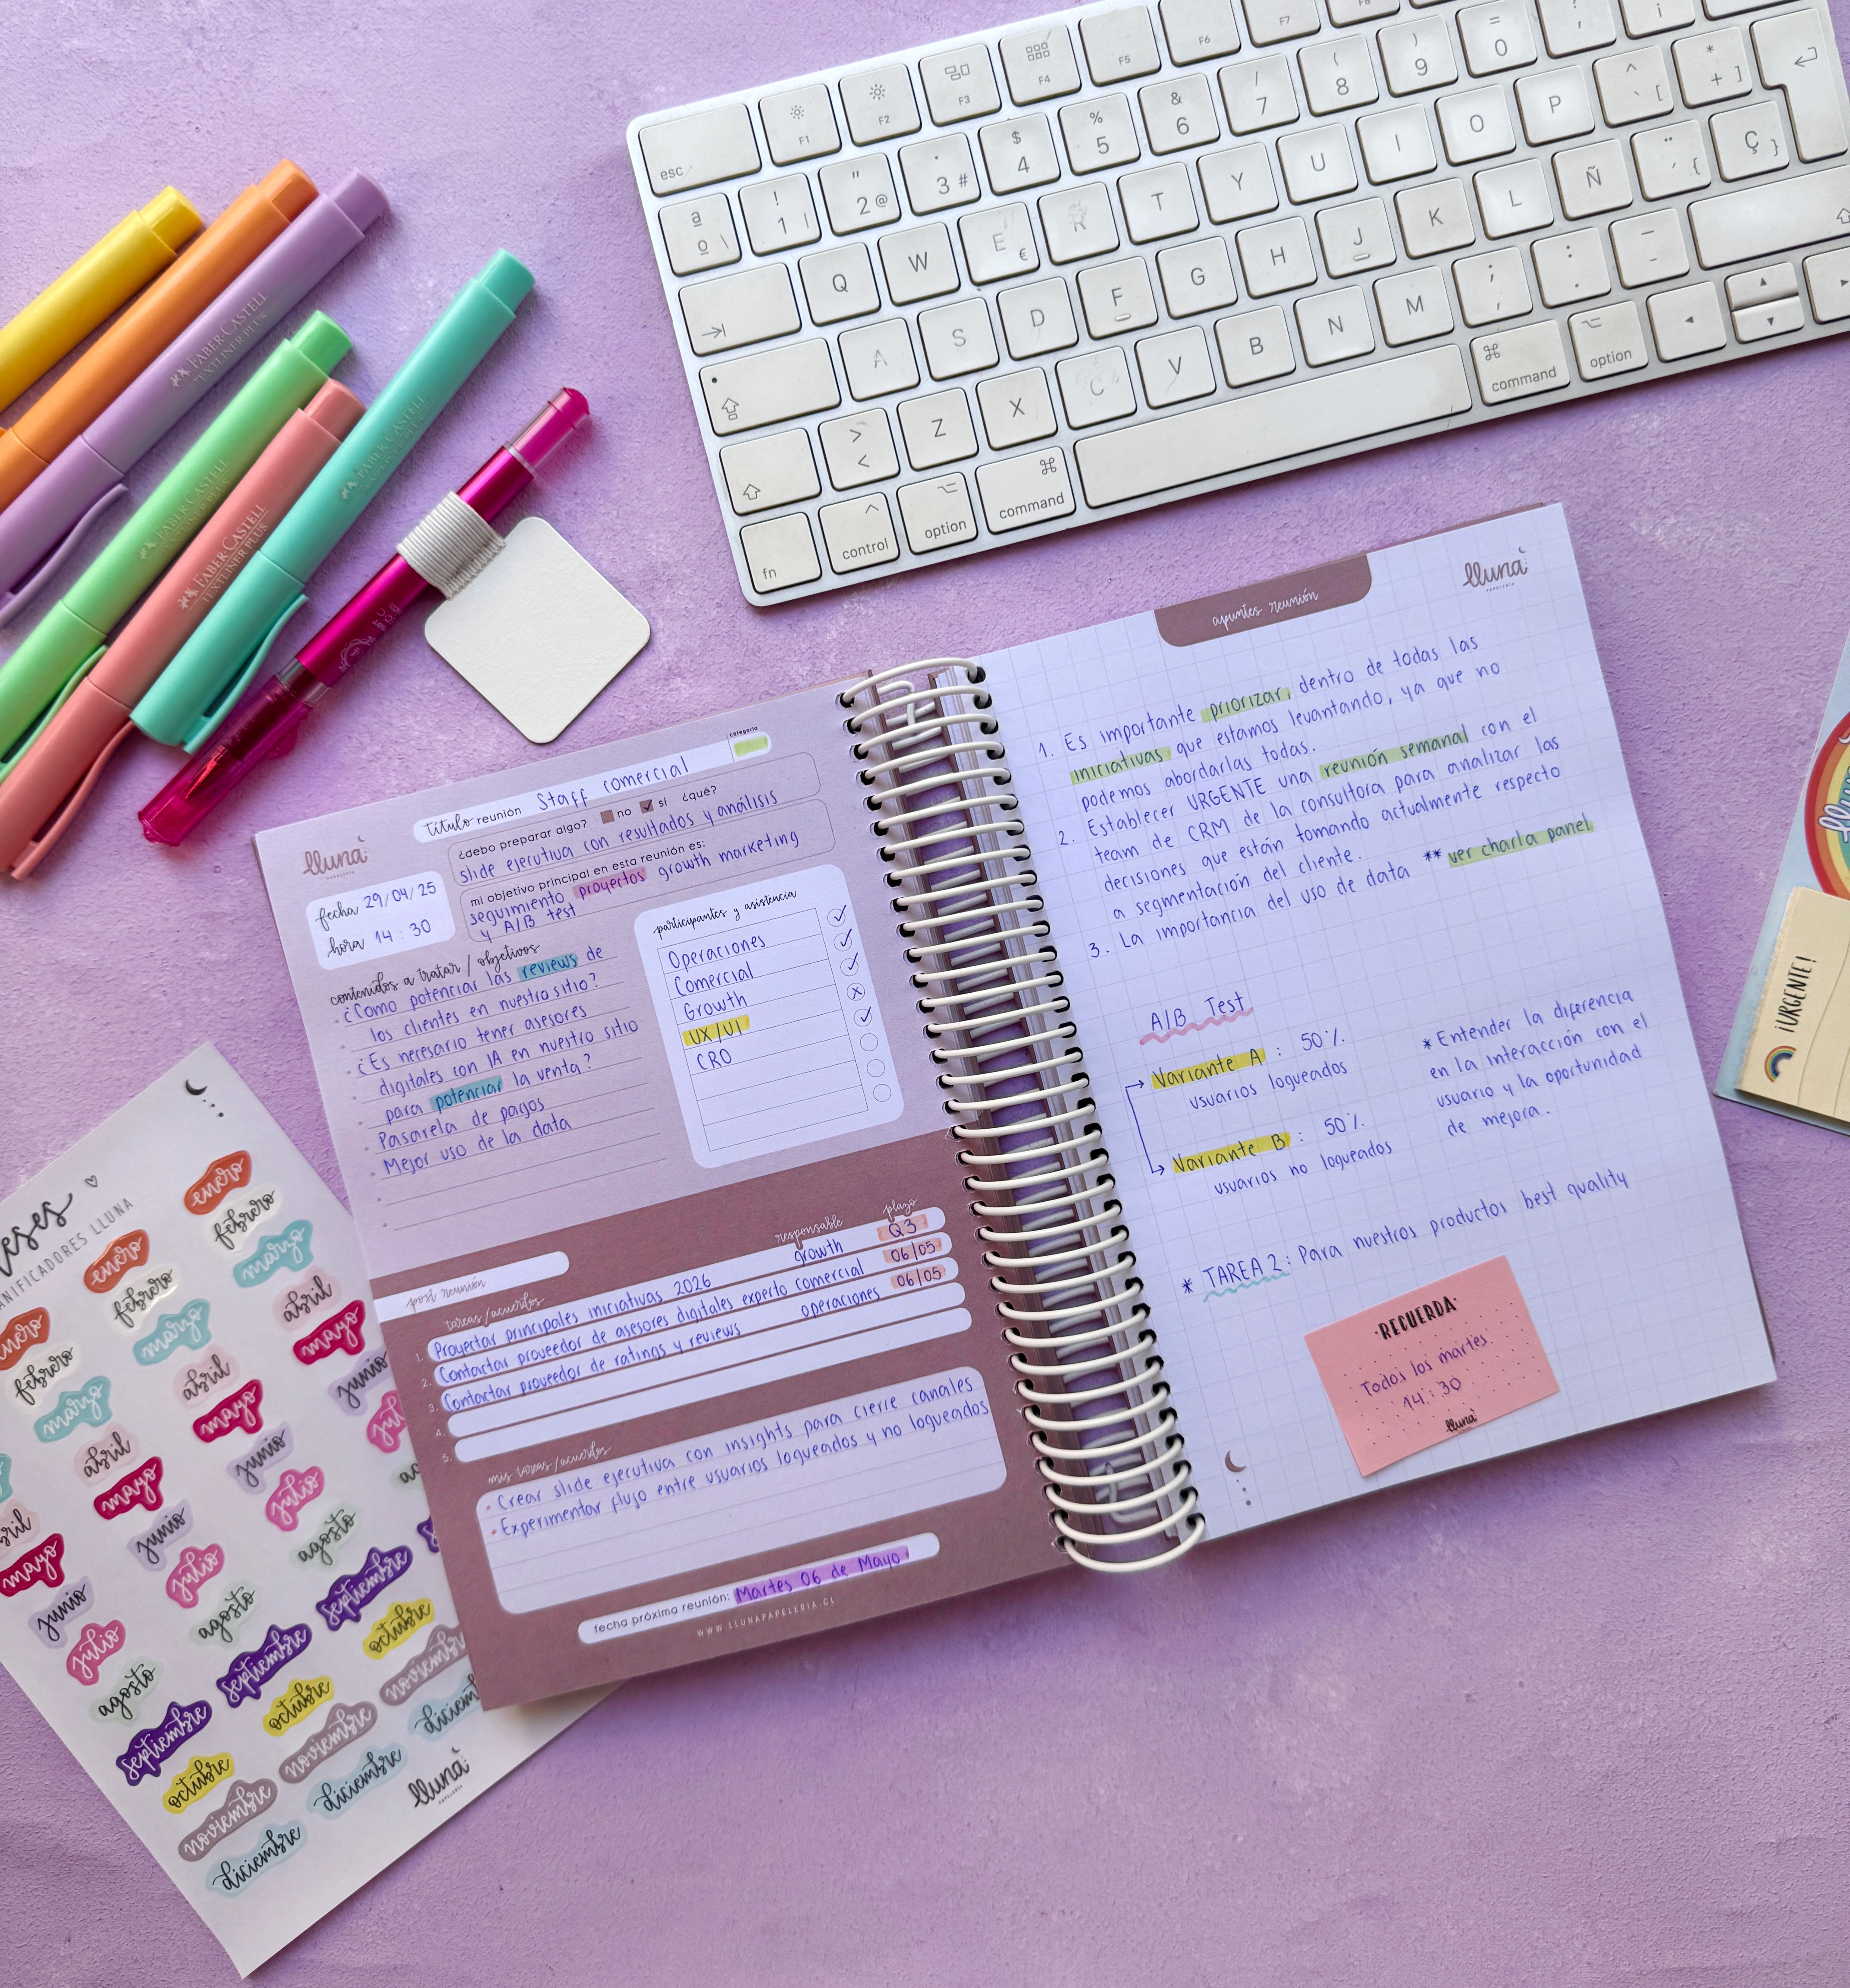 esc
F1
F2
F3
F4
F5
F6
F7
ª º \
! 1 |
" 2 @
· 3 #
$ 4
% 5
& 6
/ 7
( 8
) 9
= 0
Q W E € R T Y U I O P
^ ` [
* + ]
A S D F G H J K L Ñ
¨ ´ {
Ç }
> <
Z X C V B N M
; ,
: .
_ -
fn
control
option
command
command
option
FABER CASTELL
TEXTLINER PLUS
FABER CASTELL
FABER CASTELL
TEXTLINER PLUS
FABER CASTELL
lluna
PAPELERÍA
título reunión Staff comercial
categoría
¿debo preparar algo? no sí ¿qué?
slide ejecutiva con resultados y análisis
mi objetivo principal en esta reunión es:
seguimiento proyectos growth marketing
y A/B test
fecha 29/04/25
hora 14:30
contenidos a tratar / objetivos
¿Como potenciar las reviews de
los clientes en nuestro sitio?
¿Es necesario tener asesores
digitales con IA en nuestro sitio
para potenciar la venta?
Pasarela de pagos
Mejor uso de la data
participantes y asistencia
Operaciones
Comercial
Growth
UX/UI
CRO
post reunión
tareas/acuerdos
responsable
plazo
1. Proyectar principales iniciativas 2026 growth Q3
2. Contactar proveedor de asesores digitales experto comercial 06/05
3. Contactar proveedor de ratings y reviews operaciones 06/05
4.
5.
mis tareas/acuerdos
· Crear slide ejecutiva con insights para cierre canales
· Experimentar flujo entre usuarios logueados y no logueados
fecha próxima reunión: Martes 06 de Mayo
WWW.LLUNAPAPELERIA.CL
apuntes reunión
lluna
PAPELERÍA
1. Es importante priorizar, dentro de todas las
iniciativas, que estamos levantando, ya que no
podemos abordarlas todas.
2. Establecer URGENTE una reunión semanal con el
team de CRM de la consultora para analizar las
decisiones que están tomando actualmente respecto
a segmentación del cliente.
3. La importancia del uso de data ** ver charla panel
A/B Test
Variante A : 50%
usuarios logueados
Variante B : 50%
usuarios no logueados
* Entender la diferencia
en la interacción con el
usuario y la oportunidad
de mejora.
* TAREA 2: Para nuestros productos best quality
·RECUERDA·
Todos los martes
14:30
lluna
¡URGENTE!
lluna
PLANIFICADORES LLUNA
enero
febrero
marzo
abril
mayo
junio
julio
agosto
septiembre
octubre
noviembre
diciembre
enero
febrero
marzo
abril
mayo
junio
julio
agosto
septiembre
octubre
noviembre
diciembre
enero
febrero
marzo
abril
mayo
junio
julio
agosto
septiembre
octubre
noviembre
lluna
PAPELERÍA